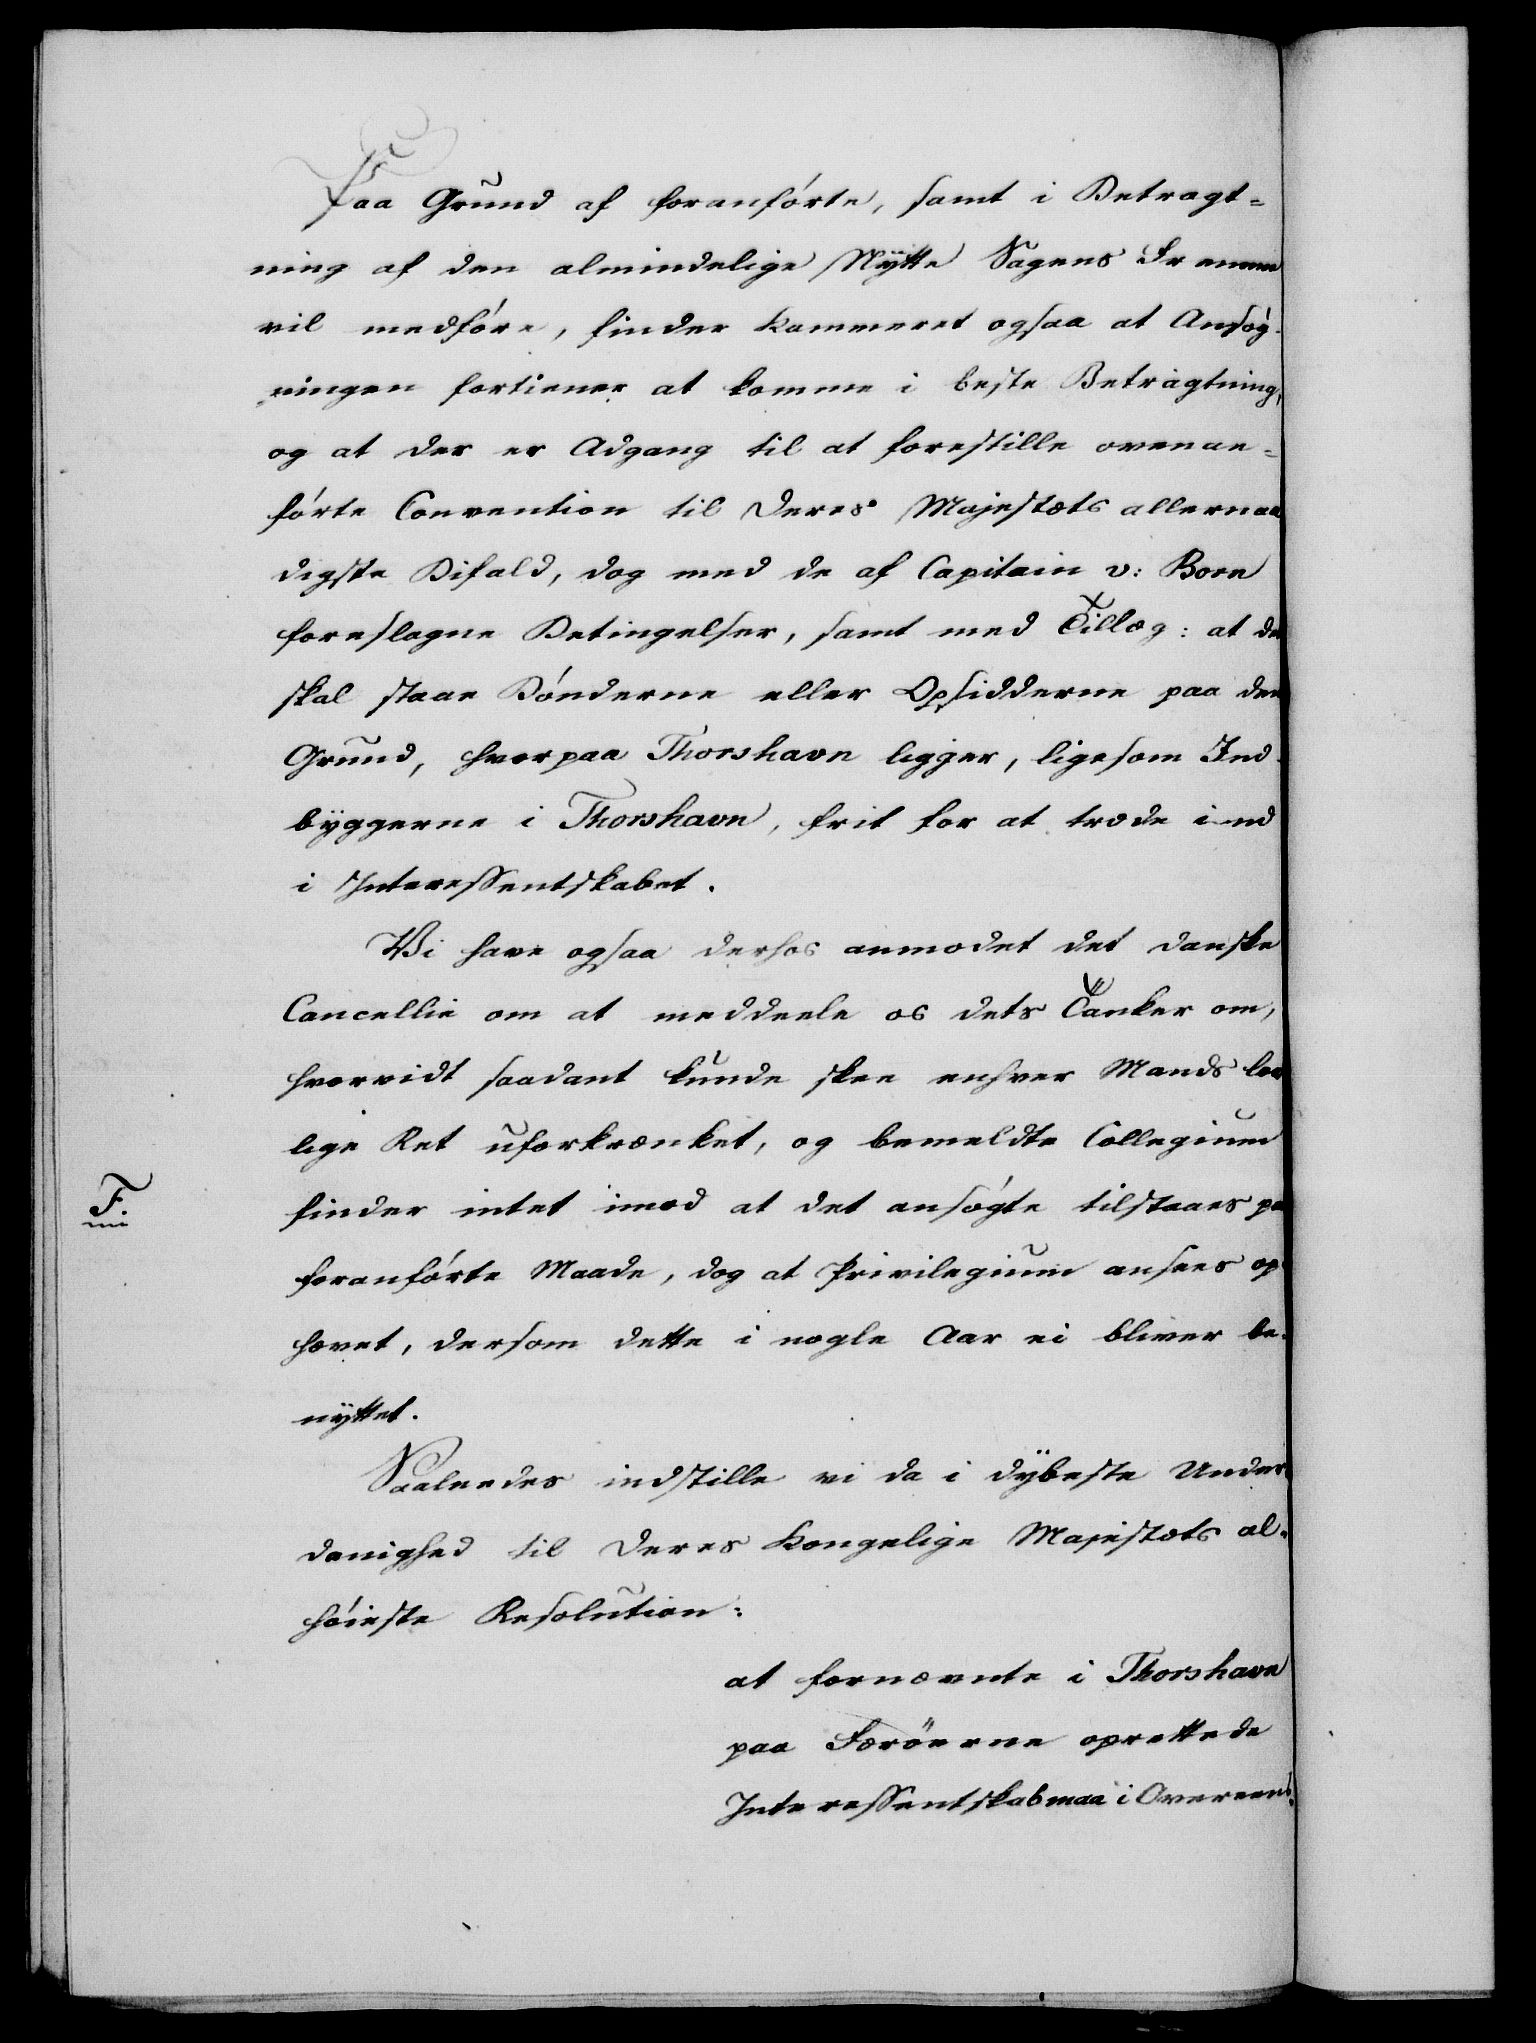 Paa Grund af foranførte, samt i Betragt=
ning af den almindelige Nÿtte Sagens Fremme
vil medføre, finder Kammeret ogsaa at Ansøg-
ningen fortiener at komme i beste Betragtning,
og at der er Adgang til at forestille ovenan=
førte Convention til Deres Majestæts allernaa
digste Bifald, dog med de af Capitain v: Born
foreslagne Betingelser, samt med Tillæg: at de
skal staae Bønderne eller Opsidderne paa den
Grund, hvorpaa Thorshavn ligger, ligesom Ind-
bÿggerne i Thorshavn, frit for at træde ind
i Interessentskabet.
Vi have ogsaa derhos anmodet det danske
Cancellie om at meddeele os dets Tanker om,
hvorvidt saadant kunde skee enhver Mands lov
lige Ret uforkrænket, og bemeldte Collegium
F. finder intet imod at det ansøgte tilstaaes pa
foranførte Maade, dog at Privilegium ansees op-
hævet, dersom dette i nogle Aar ei bliver be-
nÿttet.
Saaledes indstille vi da i dÿbeste Under
danighed til Deres Kongelige Majestæts al=
høieste Resolution:
at fornævnte i Thorshavn
paa Færöerne oprettede
Interessentskab maa i Overeens